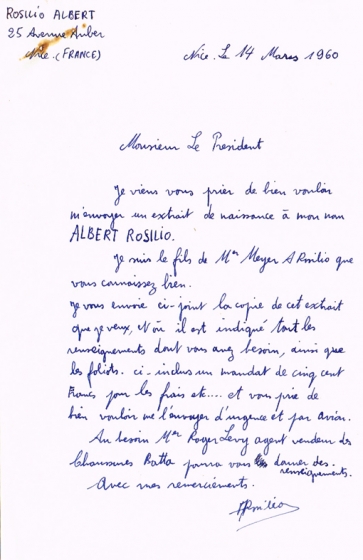 ROSILIO ALBERT
25 Avenue Auber
Nice. (FRANCE)
Nice. Le 14 Mars 1960
Monsieur Le President
Je viens vous prier de bien vouloir
m'envoyer un extrait de naissance à mon nom
ALBERT ROSILIO.
Je suis le fils de Mr Meyer A Rosilio que
vous connaissez bien.
Je vous envoie ci-joint la copie de cet extrait
que je veux, et où il est indiqué tout les
renseignements dont vous avez besoin, ainsi que
les foliots. ci-inclus un mandat de cinq cent
Francs pour les frais etc.... et vous prie de
bien vouloir me l'envoyer d'urgence et par avion.
Au besoin Mr Roger Levy agent vendeur des
Chaussures Batta pourra vous donner des
renseignements.
Avec mes remerciements.
ARosilio